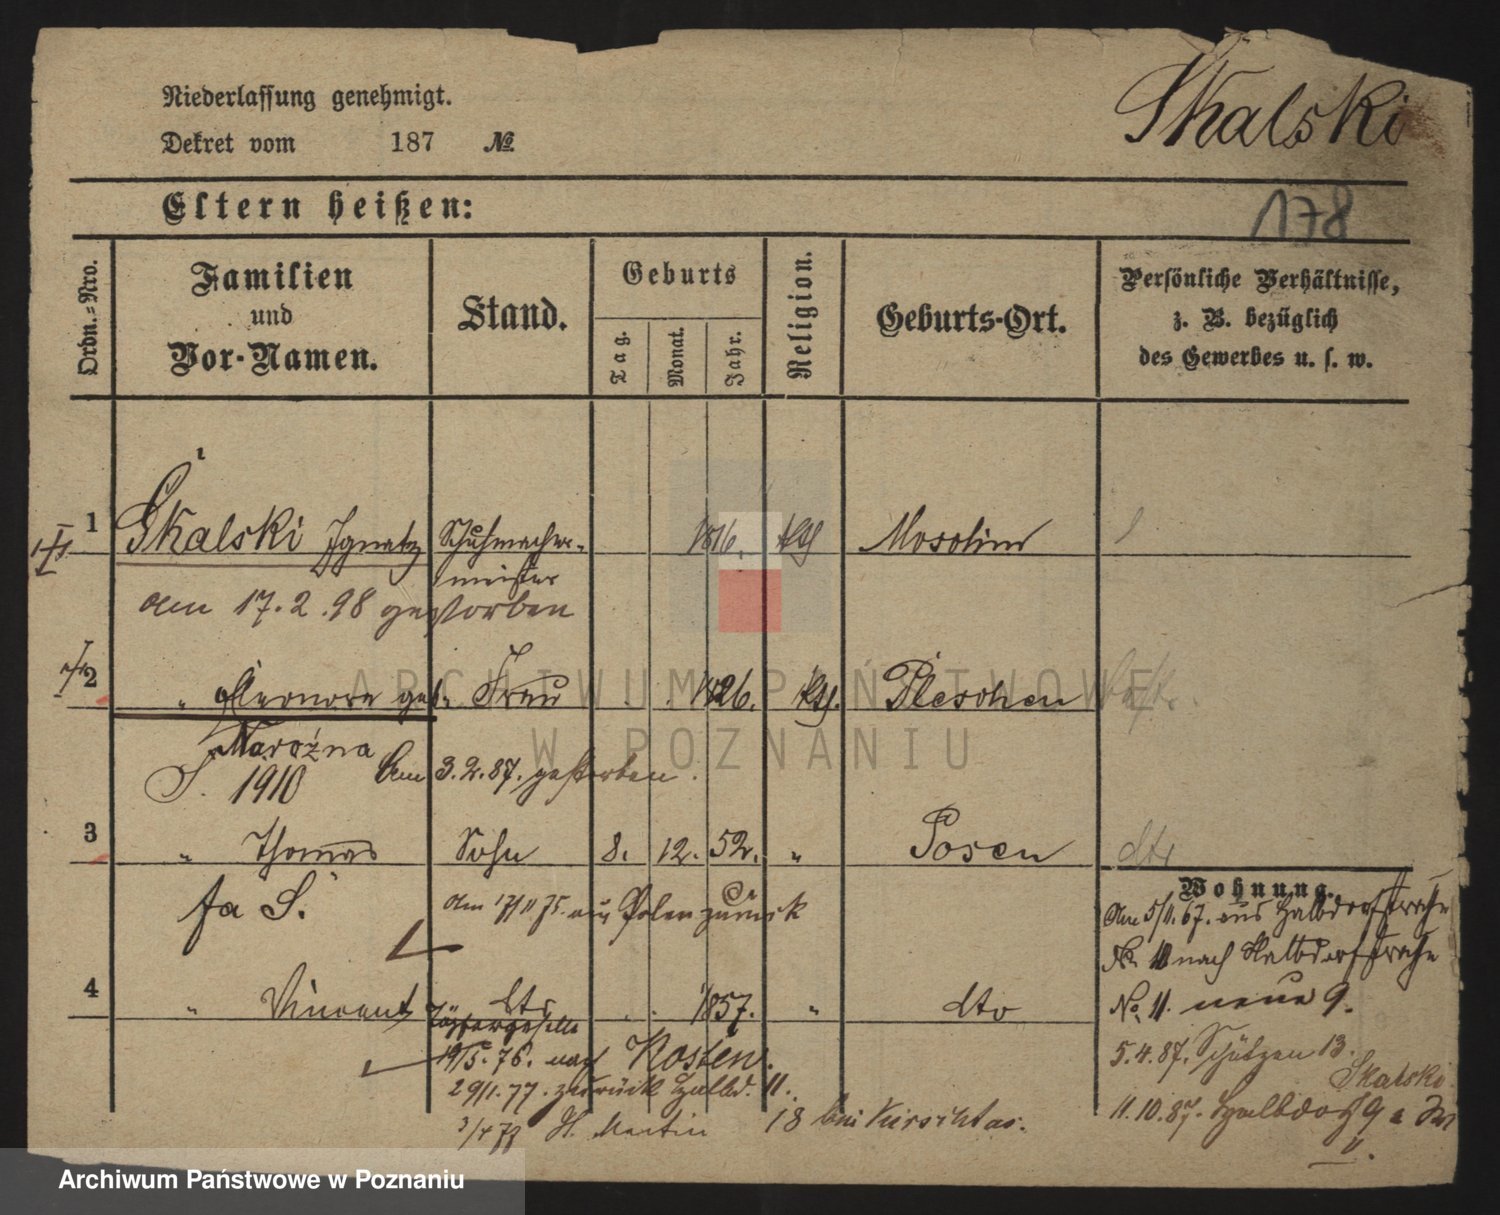 Niederlassung genehmigt.
Dekret vom 187 №
Skalski
Eltern heißen:
178
Ordn.-Nro.
Familien und Vor-Namen.
Stand.
Geburts
Tag.
Monat.
Jahr.
Religion.
Geburts-Ort.
Persönliche Verhältnisse, z. B. bezüglich des Gewerbes u. s. w.
1 Skalski Ignatz Schuhmacher- 1816. kth
meister
am 17.2.98 gestorben
2 " Eleonore geb. Frau 1826. kth. Pleschen
Narożna
S. 1910 Am 3.2.87. gestorben.
3 " Thomas Sohn 8. 12. 52. " Posen dto
fa S.
am 17/11 75. aus Polen zurück
Wohnung.
Am 5/11. 67. aus Halbdorfstraße
No. 10 nach Halbdorfstraße
4 " Vincent dto 1857. " dto
No. 11. neue 9.
Töpfergeselle
19/5. 76. nach Kosten.
5.4.87. Schützen 13.
29/1. 77. zurück Halbd. 11.
Skalski
3/4 78 St. Martin 18 bei Kirschtas.
11.10.87. Halbdorf 9 a
ARCHIWUM PAŃSTWOWE
W POZNANIU
Archiwum Państwowe w Poznaniu